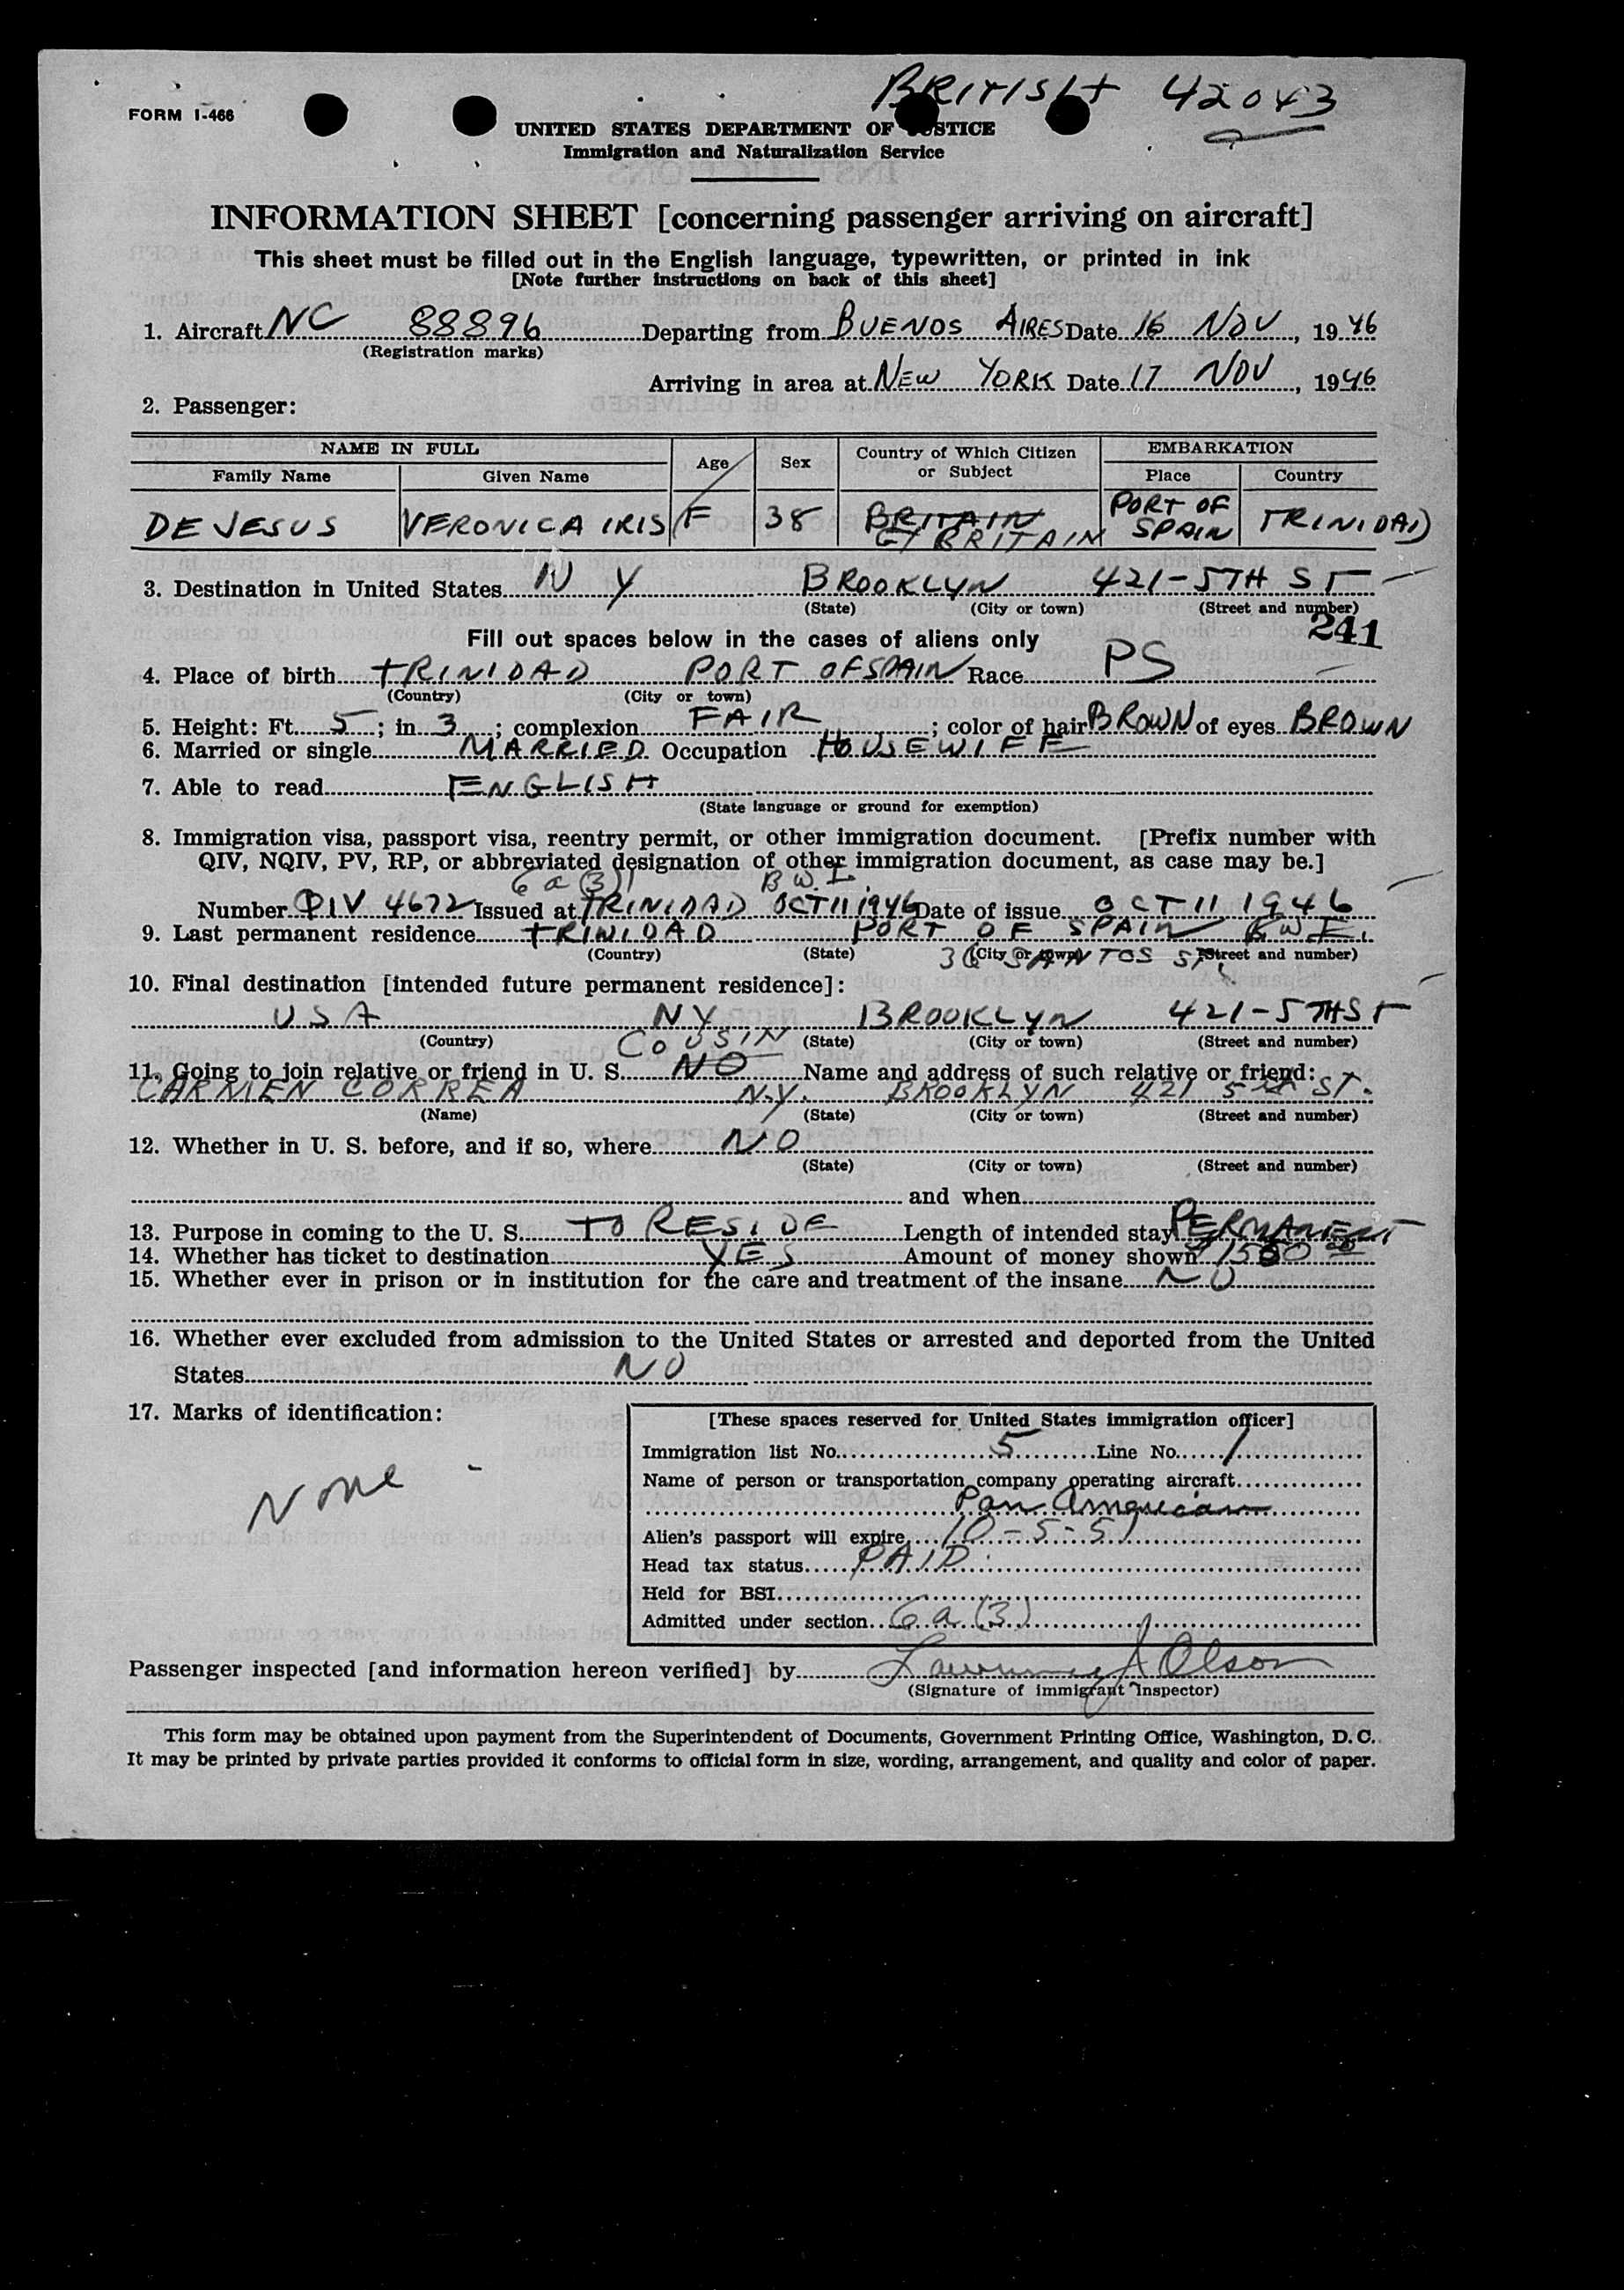 BRITISH 42043
FORM I-466
UNITED STATES DEPARTMENT OF JUSTICE
Immigration and Naturalization Service
INFORMATION SHEET [concerning passenger arriving on aircraft]
This sheet must be filled out in the English language, typewritten, or printed in ink
[Note further instructions on back of this sheet]
1. Aircraft NC 88896 Departing from BUENOS AIRES Date 16 NOV, 1946
(Registration marks)
Arriving in area at NEW YORK Date 17 NOV, 1946
2. Passenger:
NAME IN FULL Age Sex Country of Which Citizen or Subject EMBARKATION
Family Name Given Name Place Country
DE JESUS VERONICA IRIS F 38 BRITAIN PORT OF SPAIN TRINIDAD
GT BRITAIN
3. Destination in United States N Y BROOKLYN 421-5TH ST
(State) (City or town) (Street and number)
241
Fill out spaces below in the cases of aliens only
4. Place of birth TRINIDAD PORT OF SPAIN Race PS
(Country) (City or town)
5. Height: Ft. 5; in 3; complexion FAIR; color of hair BROWN of eyes BROWN
6. Married or single MARRIED Occupation HOUSEWIFE
7. Able to read ENGLISH
(State language or ground for exemption)
8. Immigration visa, passport visa, reentry permit, or other immigration document. [Prefix number with
QIV, NQIV, PV, RP, or abbreviated designation of other immigration document, as case may be.]
6a(3) B.W.I.
Number QIV 4672 Issued at TRINIDAD OCT 11 1946 Date of issue OCT 11 1946
9. Last permanent residence TRINIDAD PORT OF SPAIN B.W.I.
(Country) (State) (City or town) (Street and number)
SANTOS ST.
10. Final destination [intended future permanent residence]:
USA NY BROOKLYN 421-5TH ST
(Country) (State) (City or town) (Street and number)
COUSIN
11. Going to join relative or friend in U. S. NO Name and address of such relative or friend:
CARMEN CORREA N.Y. BROOKLYN 421 5th ST.
(Name) (State) (City or town) (Street and number)
12. Whether in U. S. before, and if so, where NO
(State) (City or town) (Street and number)
and when
13. Purpose in coming to the U. S. TO RESIDE Length of intended stay PERMANENT
14. Whether has ticket to destination YES Amount of money shown
15. Whether ever in prison or in institution for the care and treatment of the insane NO
16. Whether ever excluded from admission to the United States or arrested and deported from the United
States NO
17. Marks of identification:
None -
[These spaces reserved for United States immigration officer]
Immigration list No. 5 Line No. 1
Name of person or transportation company operating aircraft
Pan American
Alien's passport will expire 10-5-51
Head tax status PAID
Held for BSI
Admitted under section 6a(3)
Passenger inspected [and information hereon verified] by Lawrence J Olson
(Signature of Immigrant Inspector)
This form may be obtained upon payment from the Superintendent of Documents, Government Printing Office, Washington, D. C.
It may be printed by private parties provided it conforms to official form in size, wording, arrangement, and quality and color of paper.